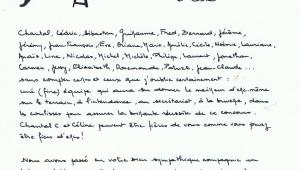 Chantal, Cédric, Sébastien, Guillaume, Fred, Bernard, Jérôme,
Jérémy, Jean-François, Eve, Oriane, Marie, Amélie, Cécile, Noémie, Lauriane,
Anaïs, Line, Nicolas, Michel, Michèle, Philippe, Laurent, Jonathan,
Carmen, Jessy, Elisabeth, Raymonde, Patrick, Jean-Claude ...
sans compter celles et ceux que j'oublie certainement :
une (fine) équipe qui aura su donner le meilleur d'elle-même
sur le terrain, à l'intendance, au secrétariat, à la buvette, dans
les coulisses pour assurer la brillante réussite de ce concours.
Chantal C et Céline peuvent être fières de vous comme vous pouvez
être fiers d'elles !
Nous avons passé en votre si sympathique compagnie un